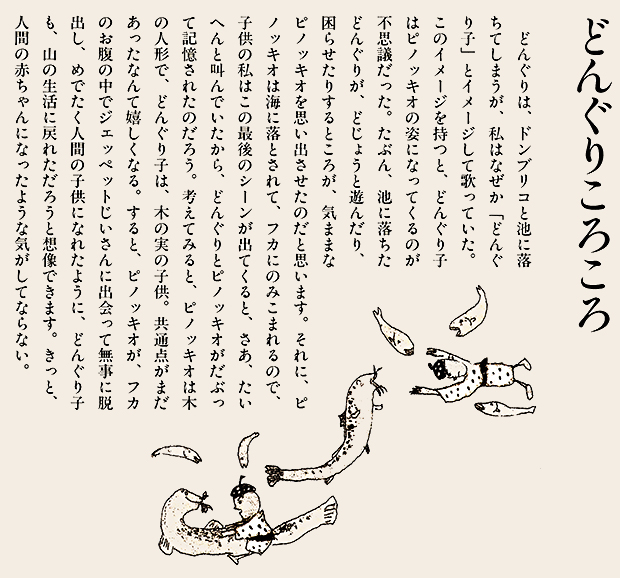 どんぐりころころ
どんぐりは、ドンブリコと池に落
ちてしまうが、私はなぜか「どんぐ
り子」とイメージして歌っていた。
このイメージを持つと、どんぐり子
はピノッキオの姿になってくるのが
不思議だった。たぶん、池に落ちた
どんぐりが、どじょうと遊んだり、
困らせたりするところが、気ままな
ピノッキオを思い出させたのだと思います。それに、ピ
ノッキオは海に落とされて、フカにのみこまれるので、
子供の私はこの最後のシーンが出てくると、さあ、たい
へんと叫んでいたから、どんぐりとピノッキオがだぶっ
て記憶されたのだろう。考えてみると、ピノッキオは木
の人形で、どんぐり子は、木の実の子供。共通点がまだ
あったなんて嬉しくなる。すると、ピノッキオが、フカ
のお腹の中でジェッペットじいさんに出会って無事に脱
出し、めでたく人間の子供になれたように、どんぐり子
も、山の生活に戻れただろうと想像できます。きっと、
人間の赤ちゃんになったような気がしてならない。